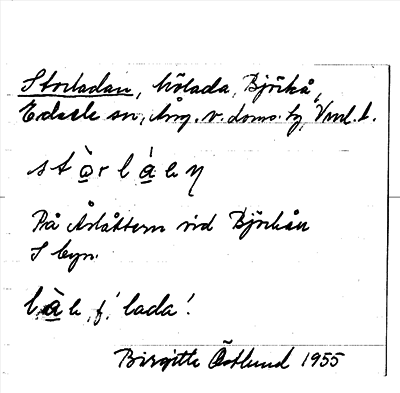 Storladan, hölada, Björkå,
Edsele sn, Ång. v. doms. tg, Vnl. l.
stò̱rlá̱en
På Åslåttern vid Björkån
S byn.
là̱e, f, 'lada'.
Birgitte Östlund 1955